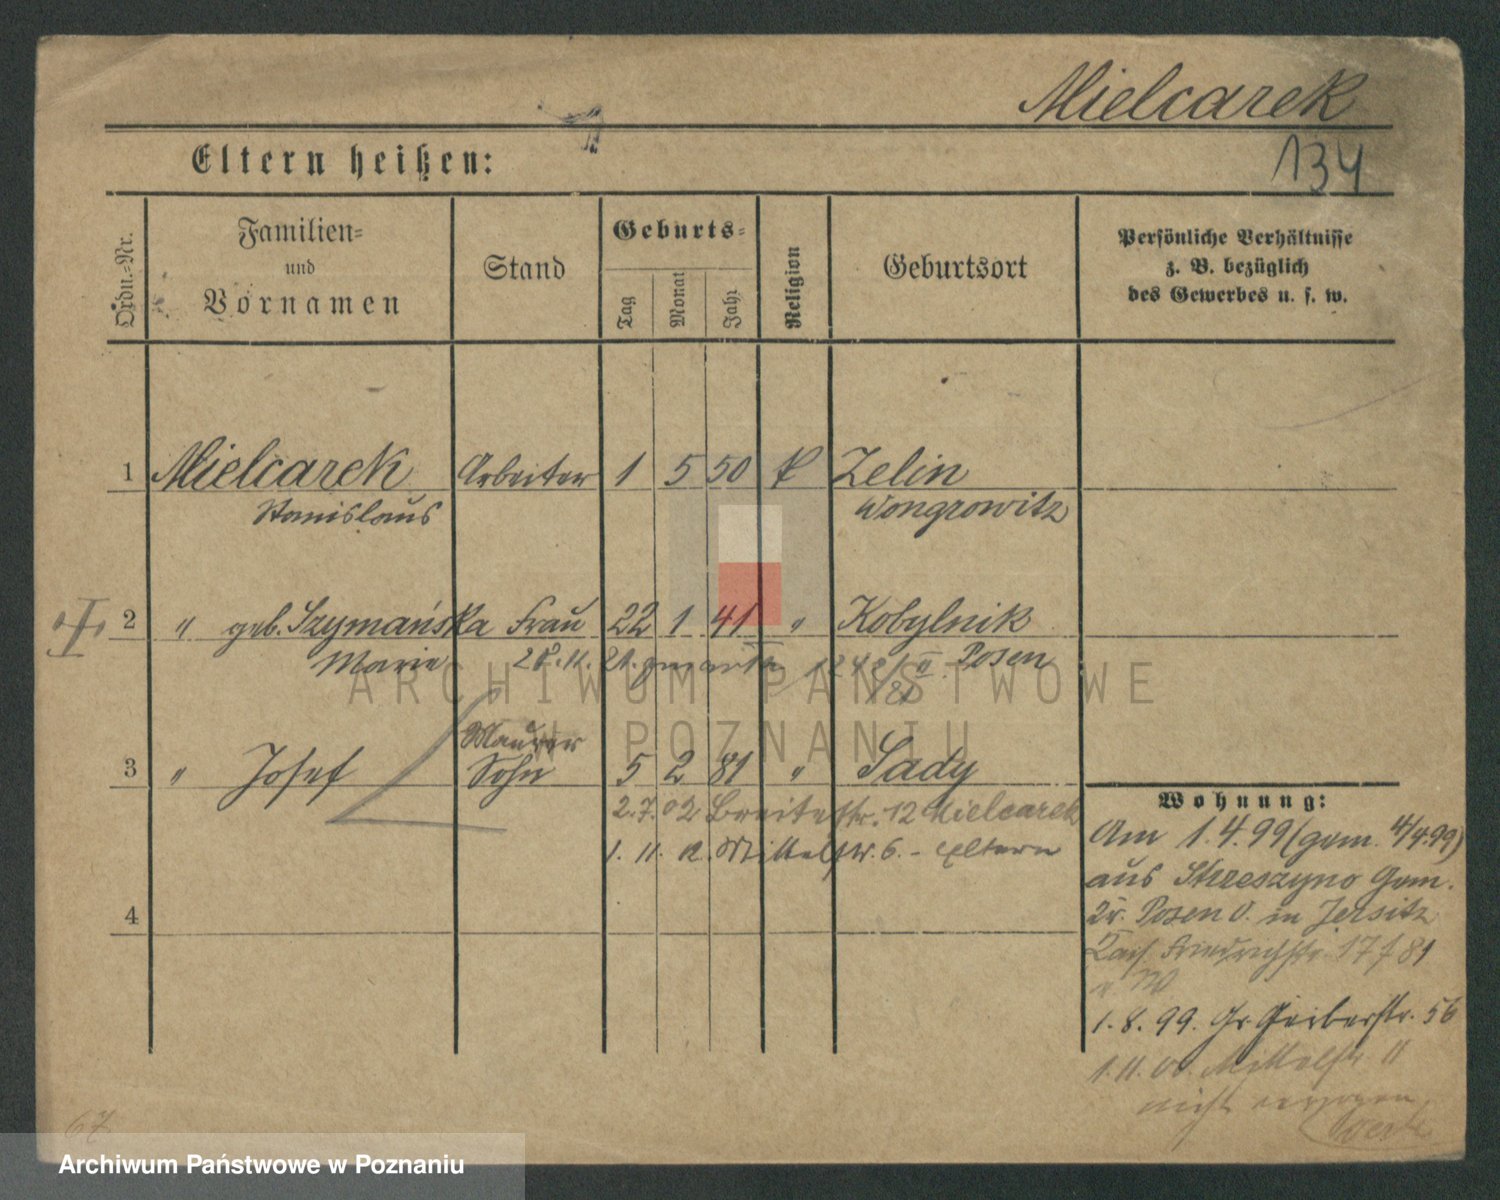 Mielcarek
134
Eltern heißen:
Ordn.-Nr.
Familien-
und
Vornamen
Stand
Geburts-
Tag
Monat
Jahr
Religion
Geburtsort
Persönliche Verhältnisse
z. B. bezüglich
des Gewerbes u. s. w.
1 Mielcarek Arbeiter 1 5 50 k Zelin
Stanislaus Wongrowitz
2 " geb. Szymańska Frau 22 1 41 " Kobylnik
Marie 28.11.21. Posen
Maurer
3 " Josef Sohn 5 2 81 " Sady
2.7.02 Breitestr. 12 Mielcarek
1. 11. 12. Mittelstr. 6. - Eltern
4
Wohnung:
Am 1.4.99 (gem. 4/4.99)
aus Streszyno Gem.
Posen O. in Jersitz
Kais. Friedrichstr. 17
1. 8. 99. Gr. Gerberstr. 56
1. 11. 00. Mittelstr. 11
nicht verzogen
67
ARCHIWUM PAŃSTWOWE
W POZNANIU
Archiwum Państwowe w Poznaniu